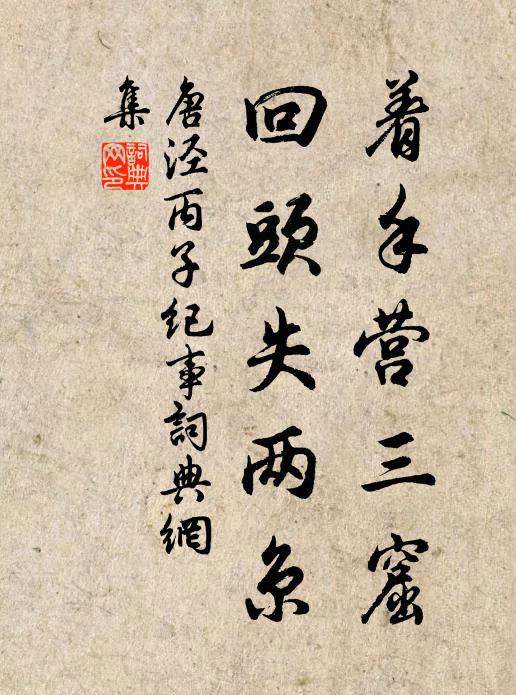 着手营三窟
回頭失两京
唐泾丙子纪事詞典網
集
詞典
网印